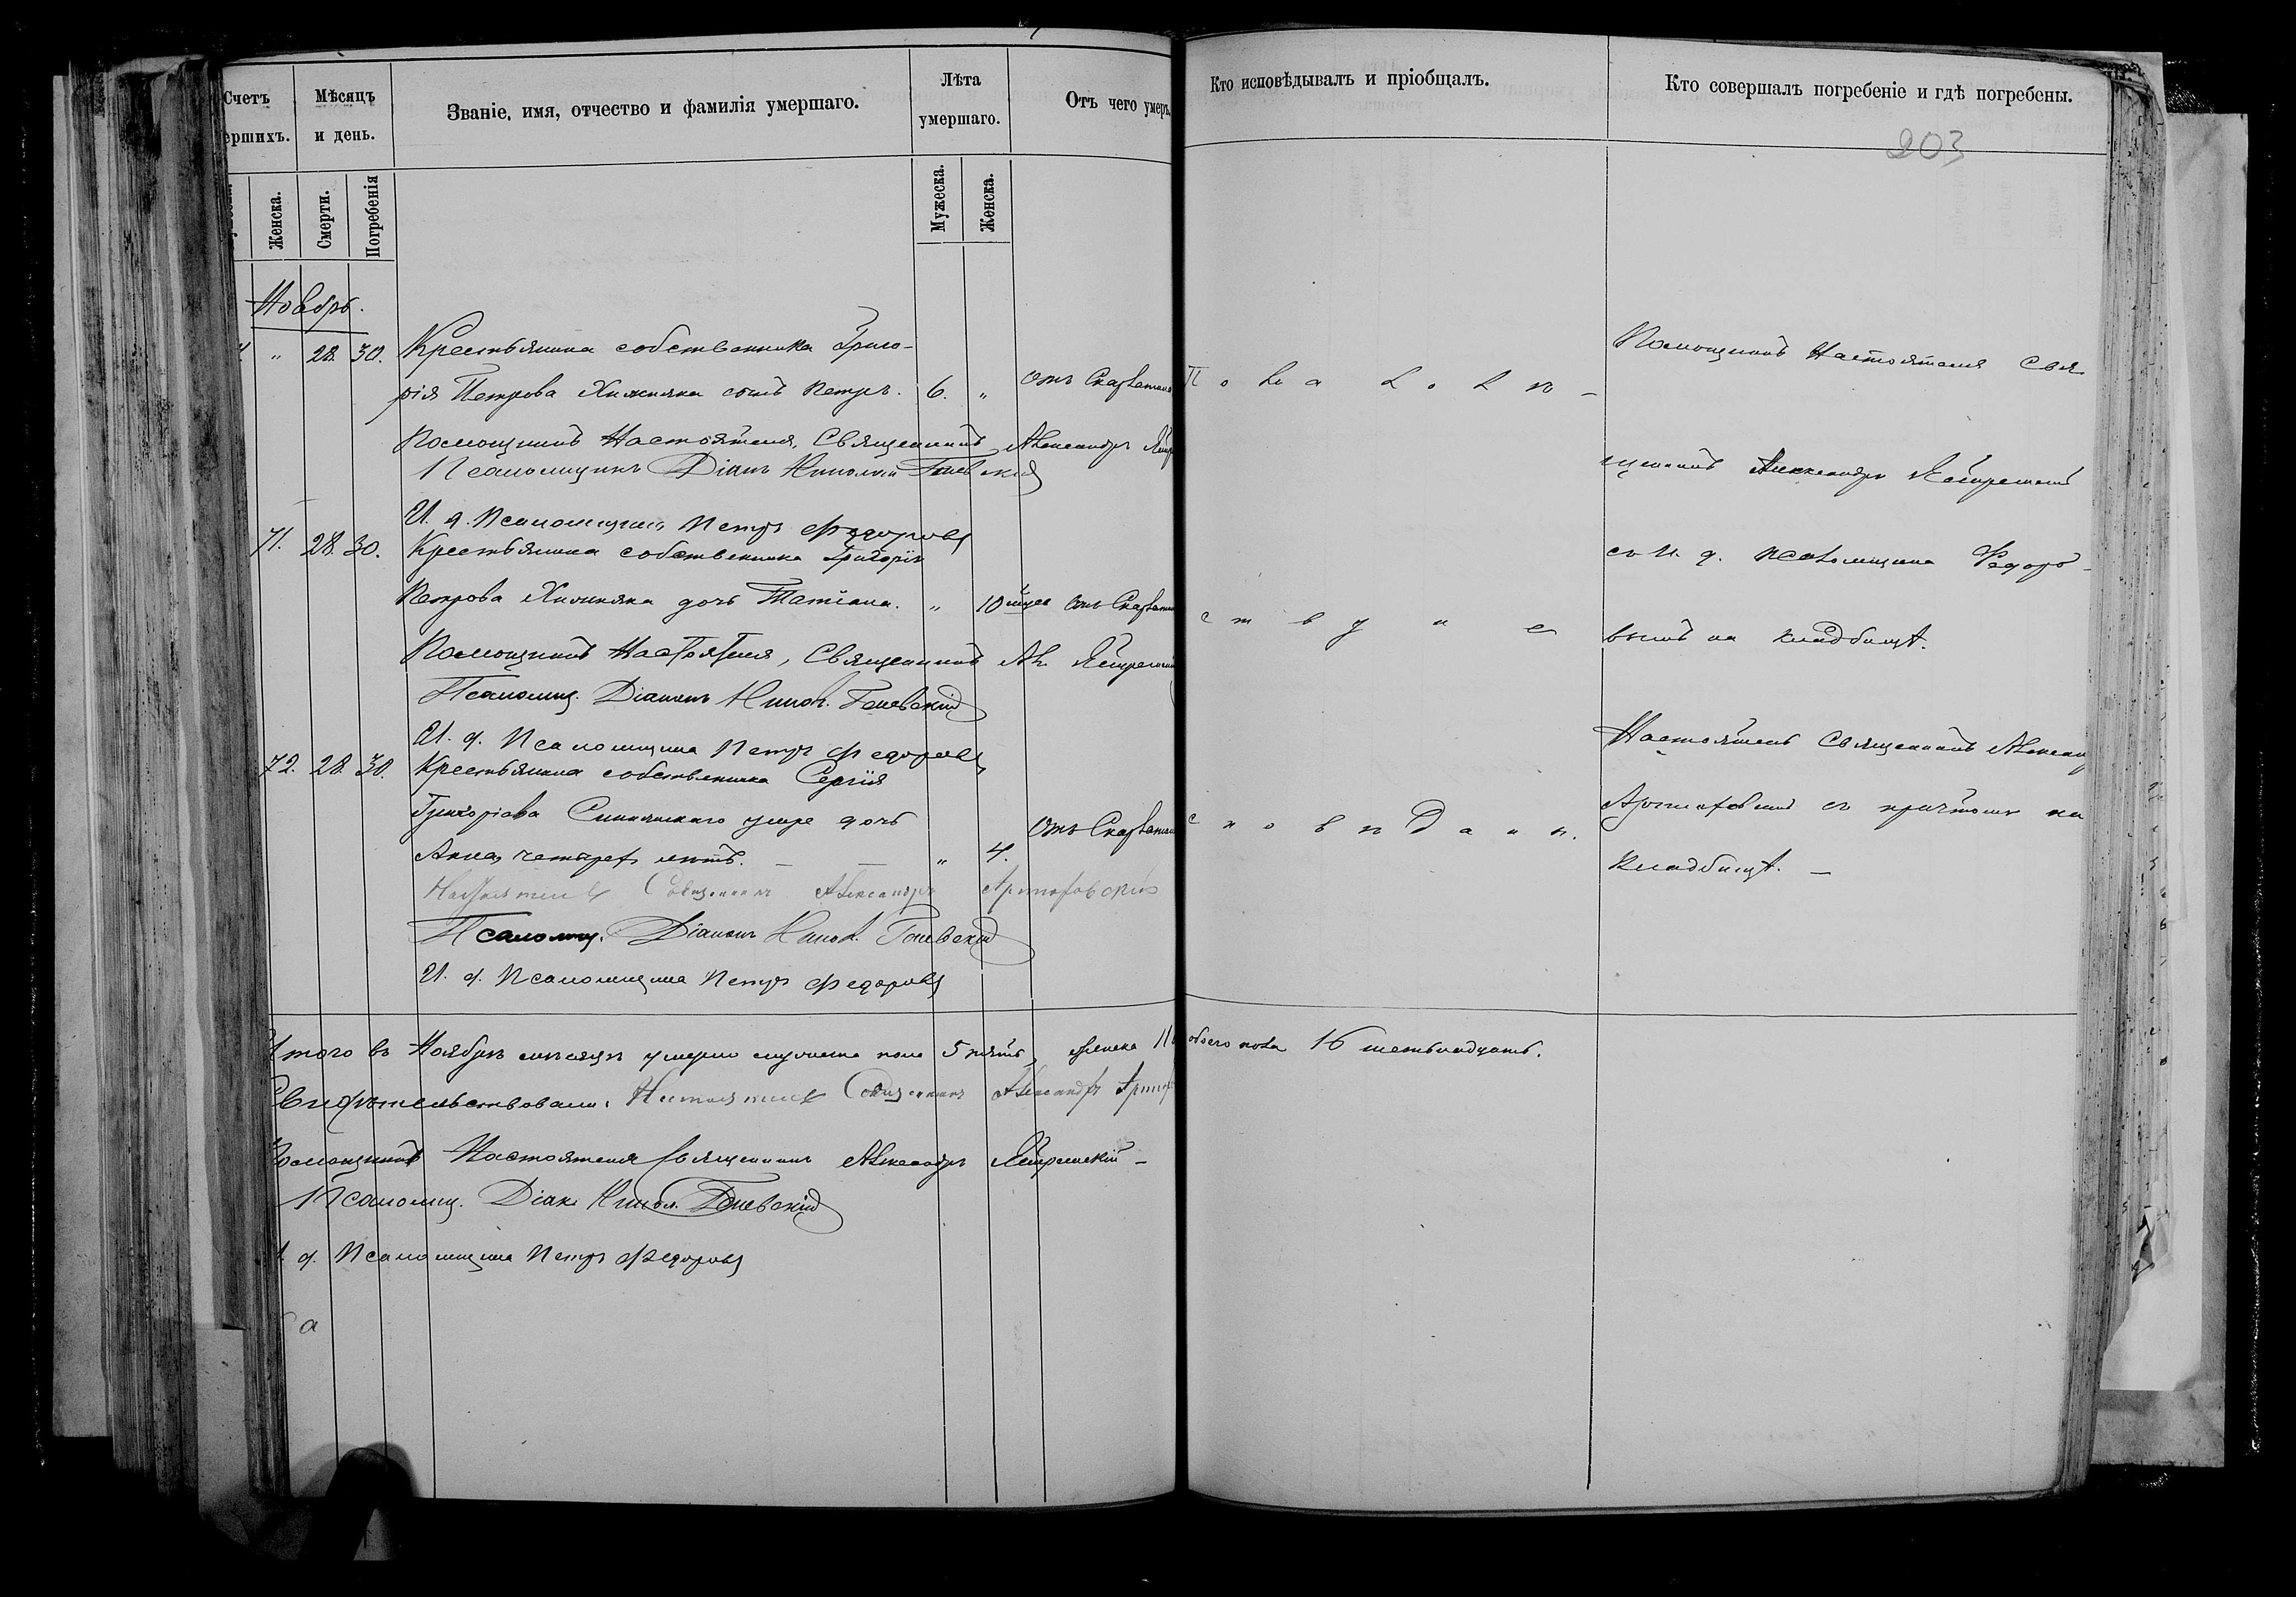 Счетъ
ершихъ.
Мѣсяцъ
и день.
Званіе, имя, отчество и фамилія умершаго.
Лѣта
умершаго.
Отъ чего умеръ.
Женска.
Смерти.
Погребенія
Мужеска.
Женска.
Ноябрь.
" 28. 30. Крестьянина собственника Григо-
рія Петрова Хижняка сынъ Петръ. 6. " Отъ Скарлатины
Помощникъ Настоятеля, Священникъ Александръ
Псаломщикъ Діаконъ Николай
И. д. Псаломщика Петръ Федоровъ
71. 28. 30. Крестьянина собственника Григорія
Петрова Хижняка дочь Татіана. " 10 мцев Отъ Скарлатины
Помощникъ Настоятеля, Священникъ Ал.
Псаломщ. Діаконъ Никол.
И. д. Псаломщика Петръ Федоровъ
72. 28. 30. Крестьянина собственника Сергія
Григоріева умре дочь
Анна, четырех лѣтъ. — — " 4. Отъ Скарлатины
Настоятель Священникъ Александръ
Псаломщ. Діаконъ Никол.
И. д. Псаломщика Петръ Федоровъ
Итого въ Ноябрѣ мѣсяцѣ умерло мужеска пола 5 пять, женска 11
Свидѣтельствовали: Настоятель Священникъ Александръ
Помощникъ Настоятеля Священникъ Александръ
Псаломщ. Діак. Никол.
д. Псаломщика Петръ Федоровъ
а
Кто исповѣдывалъ и пріобщалъ.
Кто совершалъ погребеніе и гдѣ погребены.
203
Помощникъ Настоятеля Свя-
щенникъ Александръ
съ И. д. псаломщика Федоро-
вымъ на кладбищѣ.
Настоятель Священникъ Александръ
съ причтомъ на
кладбищѣ. —
обоего пола 16 шестьнадцать.